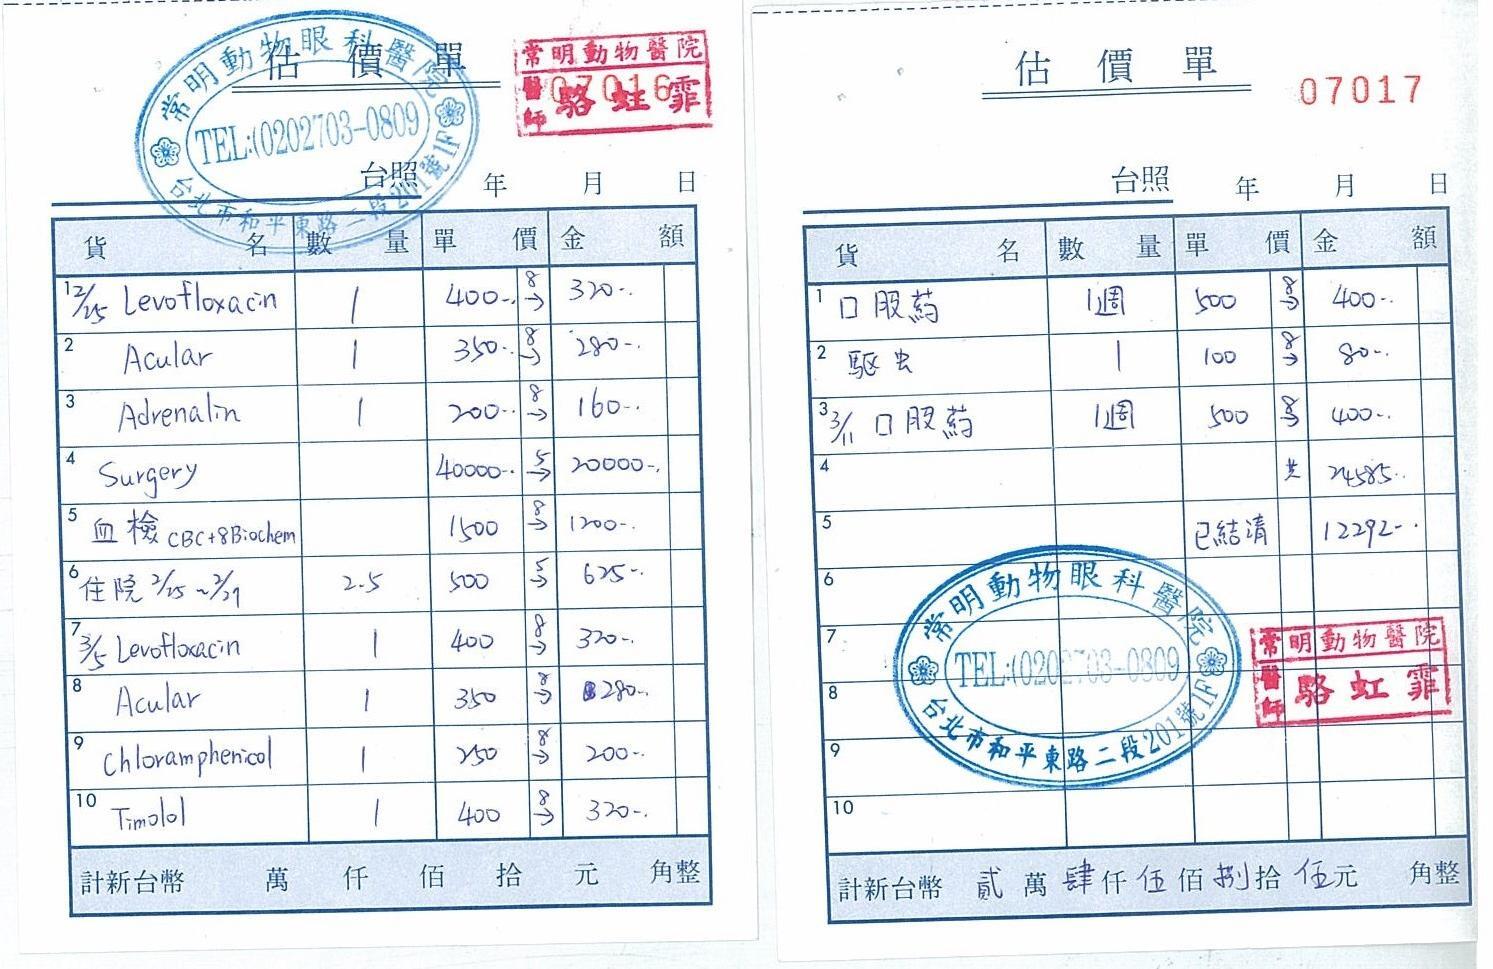 估價單
07016
常明動物眼科醫院
TEL:(02)2703-0809
台北市和平東路二段201號1F
常明動物醫院
醫師 駱虹霏
台照 年 月 日
貨名 數量 單價 金額
1 2/25 Levofloxacin 1 400-. 8→ 320-.
2 Acular 1 350-. 8→ 280-.
3 Adrenalin 1 200-. 8→ 160-.
4 Surgery 40000-. 5→ 20000-.
5 血檢 CBC+8Biochem 1500 8→ 1200-.
6 住院 2/25~2/27 2.5 500 5→ 625-.
7 3/5 Levofloxacin 1 400 8→ 320-.
8 Acular 1 350 8→ 280-.
9 Chloramphenicol 1 250 8→ 200-.
10 Timolol 1 400 8→ 320-.
計新台幣 萬 仟 佰 拾 元 角整
估價單
07017
台照 年 月 日
貨名 數量 單價 金額
1 口服葯 1週 500 8→ 400-.
2 驅虫 1 100 8→ 80-.
3 3/11 口服葯 1週 500 8→ 400-.
4 共 24585-.
5 已結清 12292-.
6
7
8
9
10
常明動物眼科醫院
TEL:(02)2703-0809
台北市和平東路二段201號1F
常明動物醫院
醫師 駱虹霏
計新台幣 貳萬肆仟伍佰捌拾伍元 角整